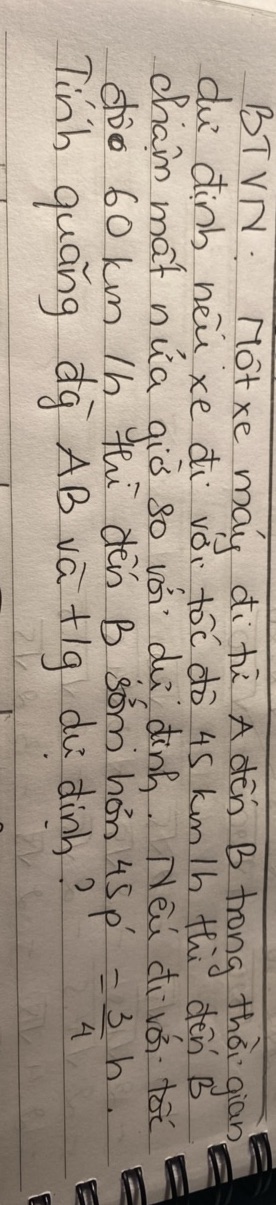 BTVN. Một xe máy đi từ A đến B trong thời gian
dự định nếu xe đi với tốc độ 45 km/h thì đến B
chậm mất nửa giờ so với dự định. Nếu đi với tốc
độ 60 km/h thì đến B sớm hơn 45p' = 3/4 h.
Tính quãng đg AB và t/g dự định?